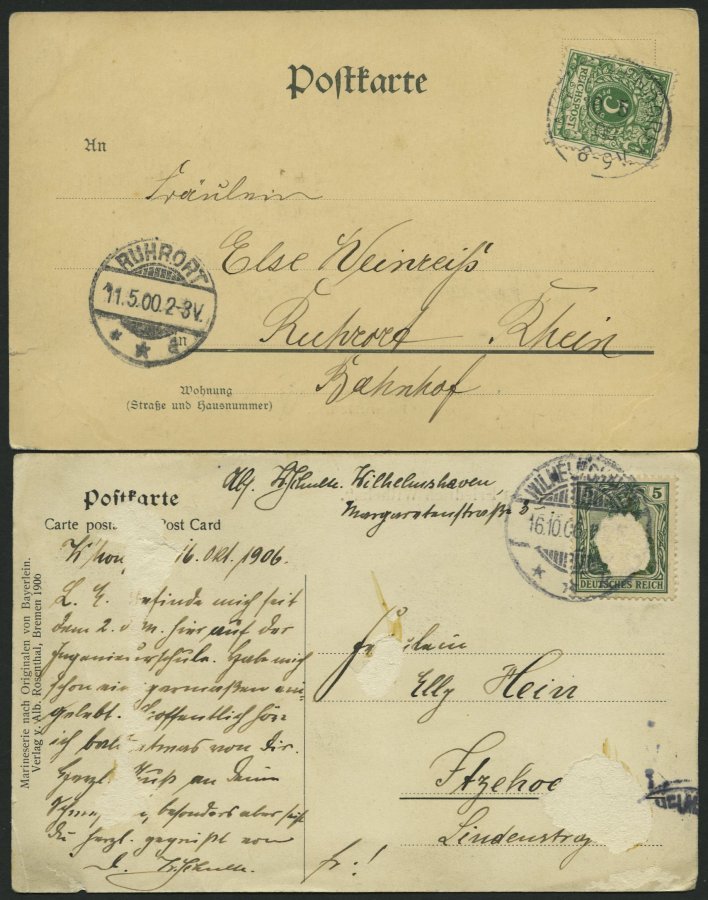 Postkarte
An
REICHSPOST
5
Fräulein
Else Weinreiß
RUHRORT
11.5.00.2-3V.
Ruhrort Rhein
Bahnhof
Wohnung
(Straße und Hausnummer)
Postkarte
Carte posta Post Card
Marineserie nach Originalen von Bayerlein.
Verlag v. Alb. Rosenthal, Bremen 1906
Wilhelmshaven,
Margaretenstraße 5
16.10.06
5
DEUTSCHES REICH
16. Okt. 1906.
L. E. efinde mich seit
dem 2. d. M. hier auf der
Ingenieurschule. Habe mich
schon ei germaßen ein-
gelebt. offentlich hö-
ich bal etwas von Dir.
Herzl. uß an Deine
besonders aber seist
Du herzl. gegrüßt von
D.
fr.!
Fräulein
Elly Hein
Itzehoe
Lindenstra